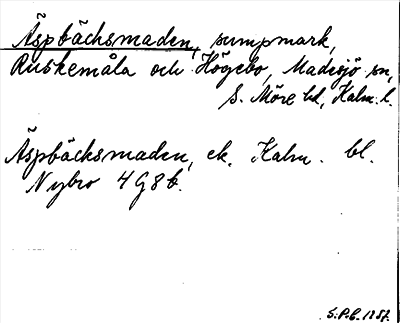 Äspbäcksmaden, sumpmark,
Ruskemåla och Högebo, Madesjö sn,
S. Möre hd, Kalm. l.
Äspbäcksmaden, ek. Kalm. bl.
Nybro 4G8b.
S.P.B. 1957.